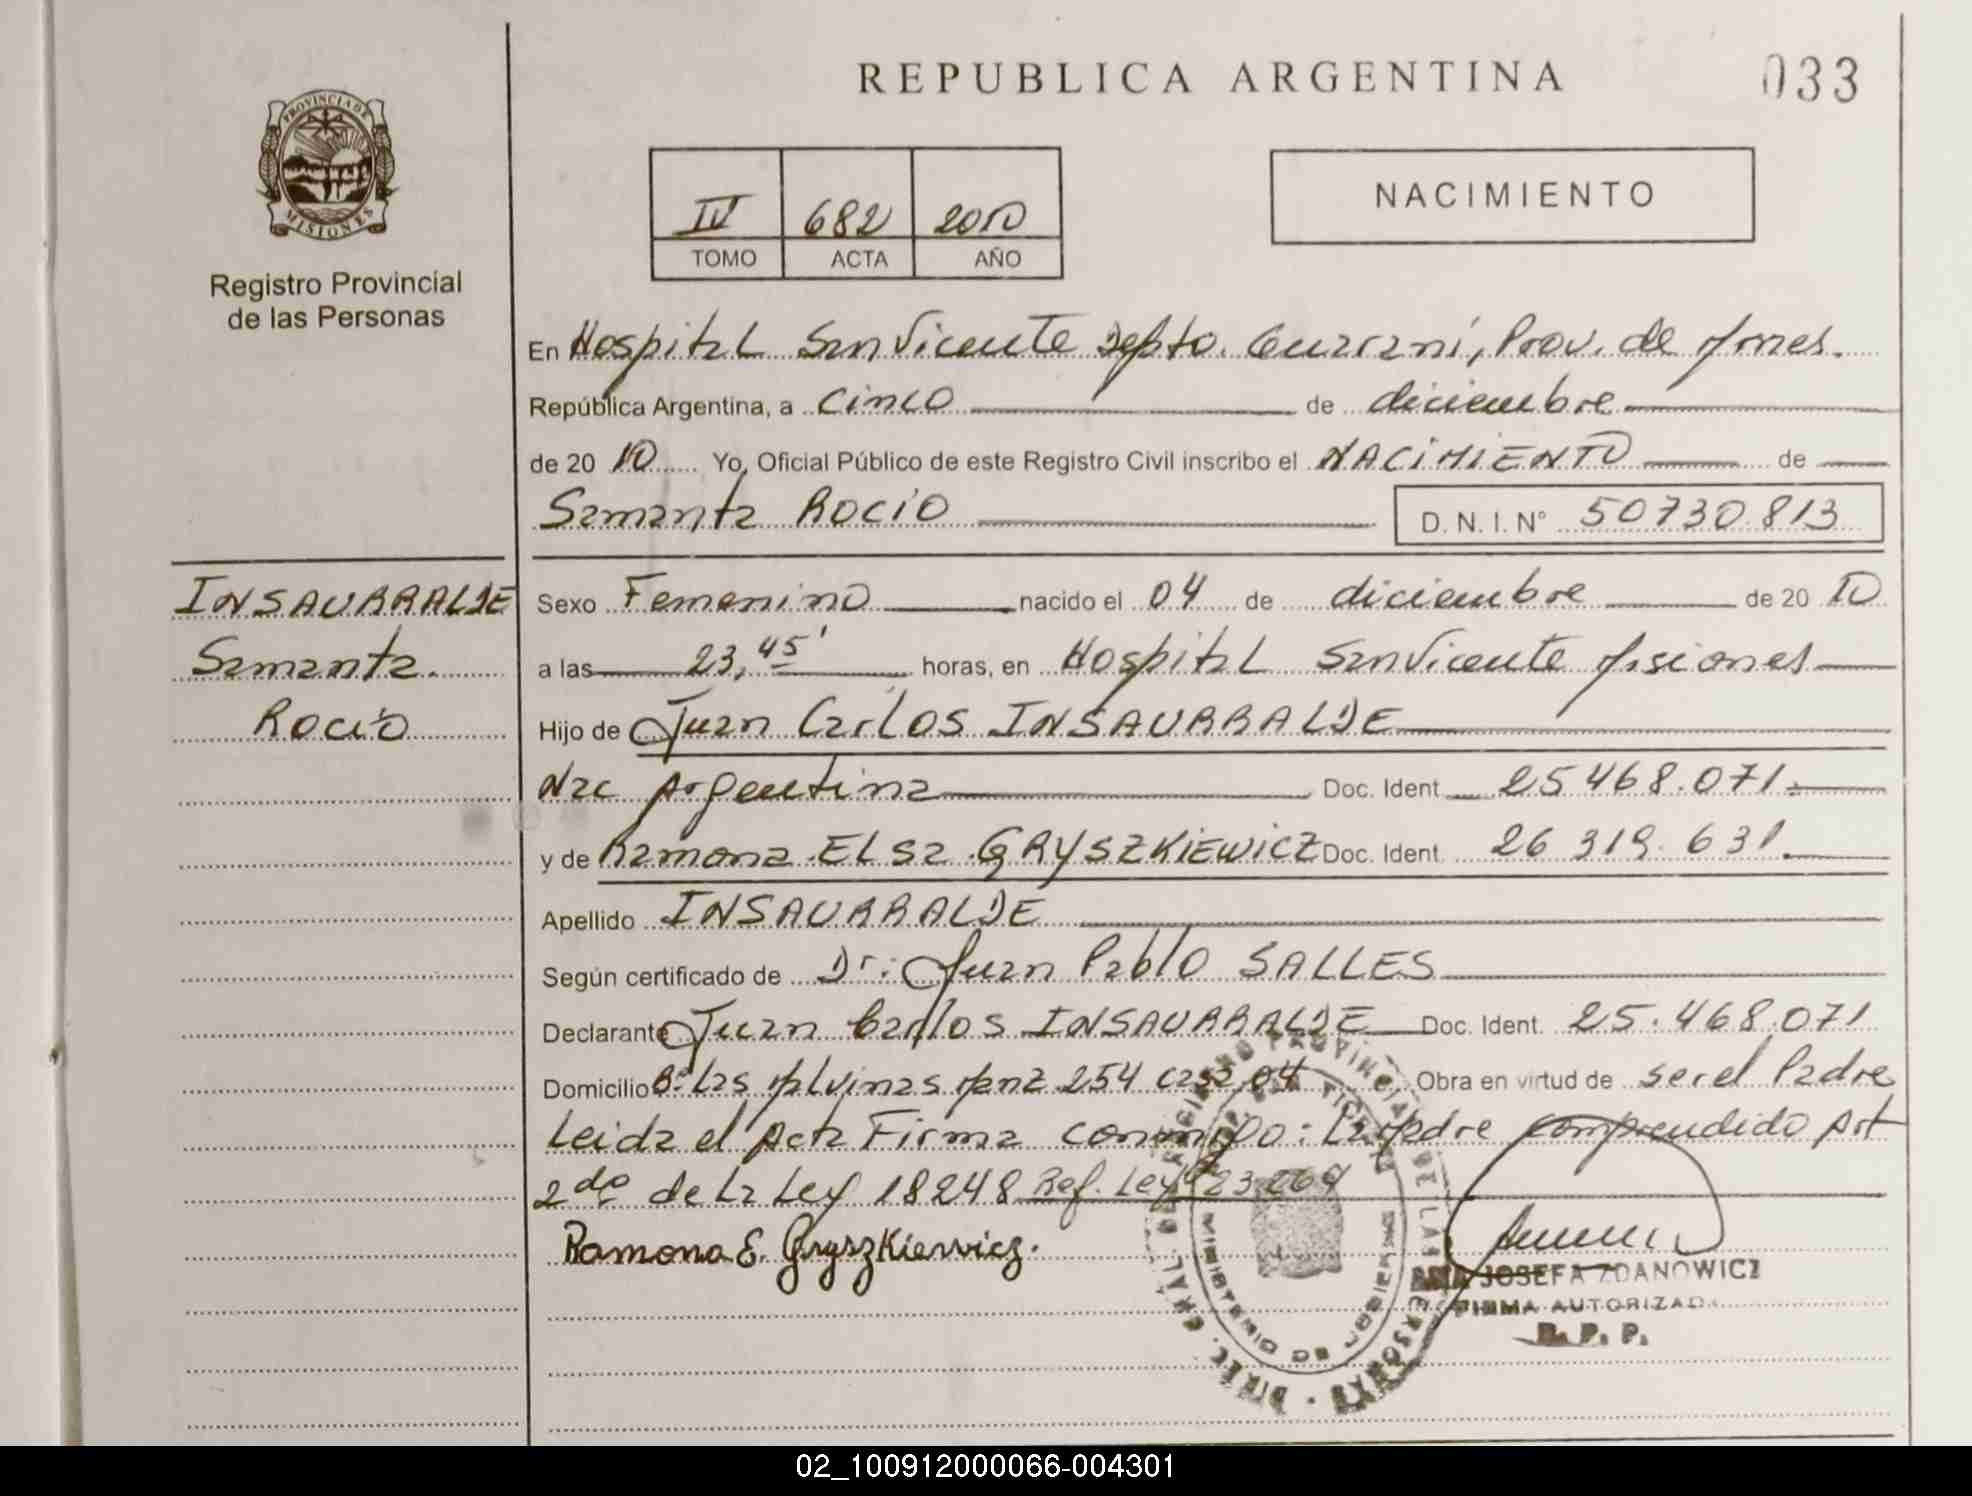 REPUBLICA ARGENTINA
033
PROVINCIA DE
MISIONES
Registro Provincial
de las Personas
IV 682 2010
TOMO ACTA AÑO
NACIMIENTO
En Hospital San Vicente Depto. Guaraní, Prov. de Mnes.
República Argentina, a cinco de diciembre
de 20 10 Yo, Oficial Público de este Registro Civil inscribo el NACIMIENTO de
Samanta Rocio D. N. I. N° 50730.813
INSAURRALDE
Samanta.
Rocío
Sexo Femenino nacido el 04 de diciembre de 20 10
a las 23,45' horas, en Hospital San Vicente Misiones
Hijo de Juan Carlos INSAURRALDE
Nac Argentina Doc. Ident 25468.071.
y de Ramona ELsa GRYSZKIEWICZ Doc. Ident. 26 319. 631.
Apellido INSAURRALDE
Según certificado de Dr: Juan Pablo SALLES
Declarante Juan Carlos INSAURRALDE Doc. Ident. 25.468.071
Domicilio B° Las Malvinas Mana 254 casa 04 Obra en virtud de ser el Padre
Leida el Acta Firma conmigo: La Madre comprendido Art
2do de La Ley 18248 Ref. Ley 23
Ramona E. Gryszkiewicz.
ANA JOSEFA ZDANOWICZ
FIRMA AUTORIZADA
R. P. P.
02_100912000066-004301